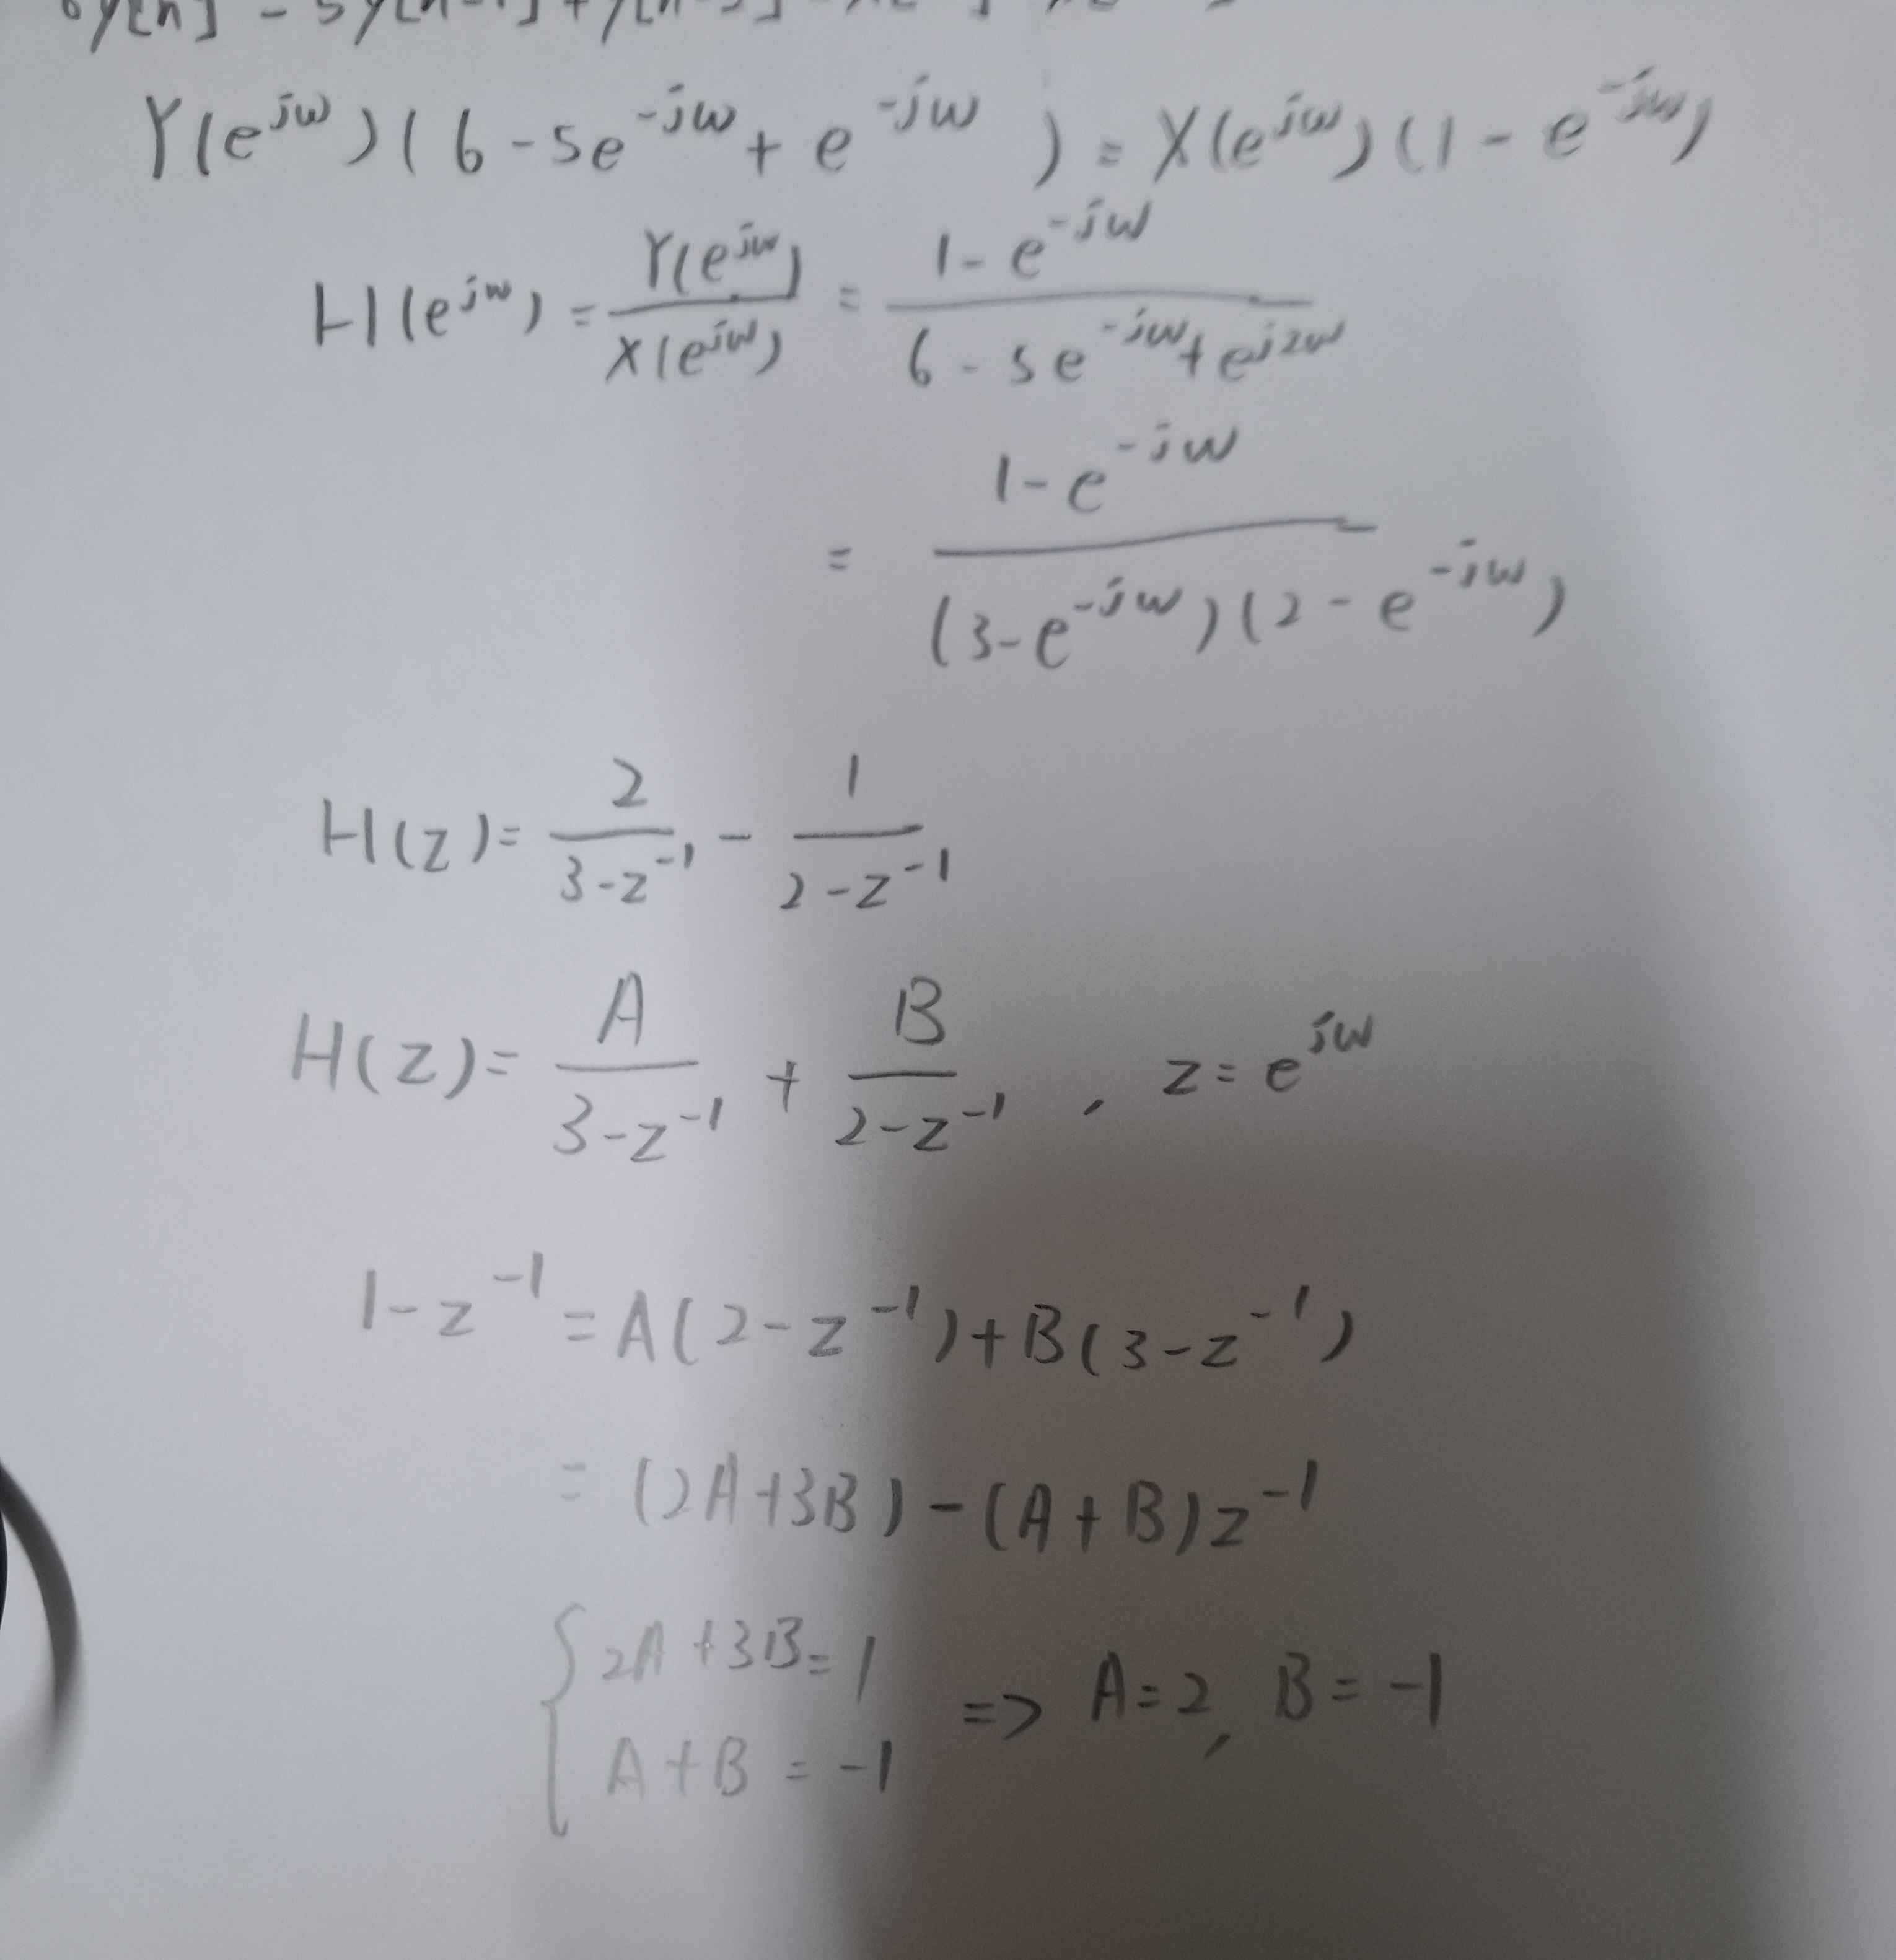 6y[n] - 5y[n-1] + y[n-2]
Y(e^{jω})(6 - 5e^{-jω} + e^{-jω}) = X(e^{jω})(1 - e^{-jω})
H(e^{jω}) = \frac{Y(e^{jω})}{X(e^{jω})} = \frac{1 - e^{-jω}}{6 - 5e^{-jω} + e^{j2ω}}
= \frac{1 - e^{-jω}}{(3 - e^{-jω})(2 - e^{-jω})}
H(z) = \frac{2}{3 - z^{-1}} - \frac{1}{2 - z^{-1}}
H(z) = \frac{A}{3 - z^{-1}} + \frac{B}{2 - z^{-1}}, z = e^{jω}
1 - z^{-1} = A(2 - z^{-1}) + B(3 - z^{-1})
= (2A + 3B) - (A + B)z^{-1}
{ 2A + 3B = 1
A + B = -1 => A = 2, B = -1